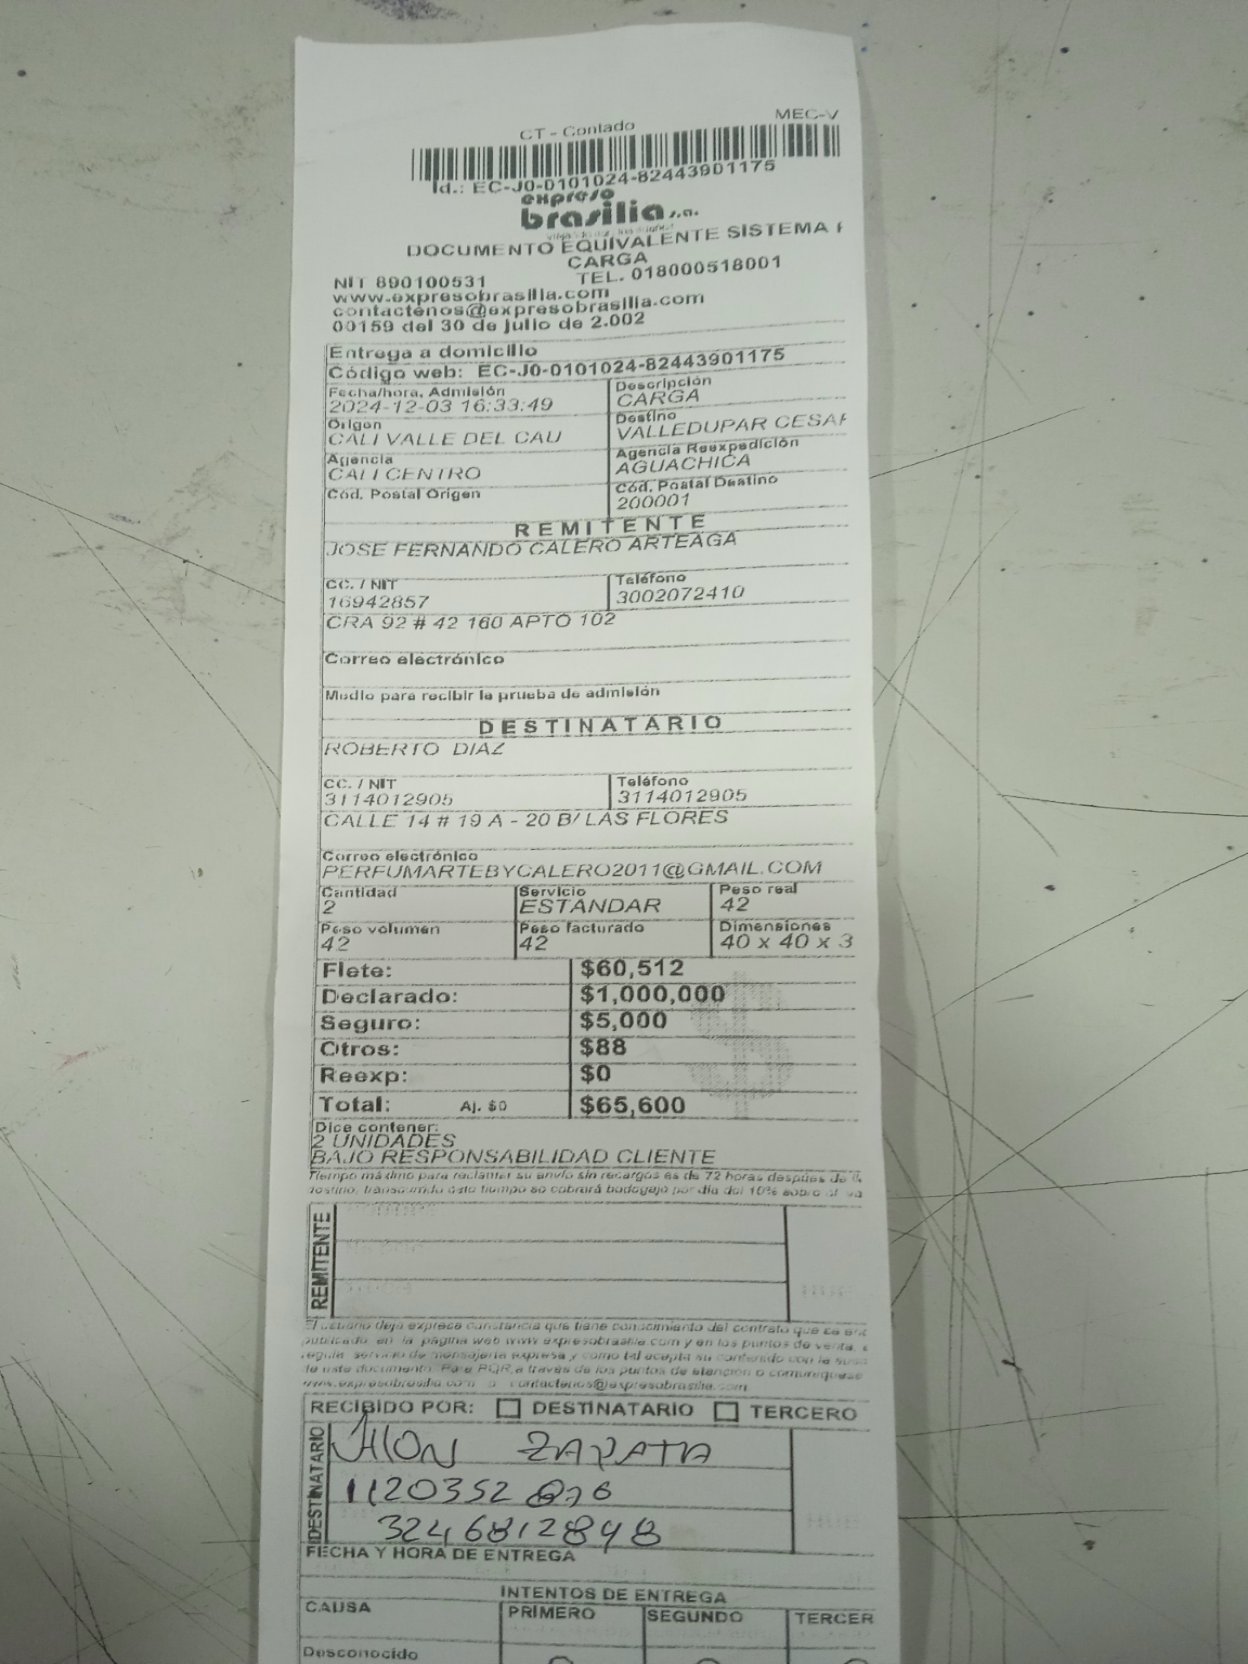 MEC-V
CT - Contado
Id.: EC-J0-0101024-82443901175
expreso
brasilia s.a.
DOCUMENTO EQUIVALENTE SISTEMA
CARGA
NIT 890100531 TEL. 018000518001
www.expresobrasilia.com
contactenos@expresobrasilia.com
00159 del 30 de julio de 2.002
Entrega a domicilio
Código web: EC-J0-0101024-82443901175
Fecha/hora, Admisión Descripción
2024-12-03 16:33:49 CARGA
Origen Destino
CALI VALLE DEL CAU VALLEDUPAR CESAR
Agencia Agencia Reexpedición
CALI CENTRO AGUACHICA
Cód. Postal Origen Cód. Postal Destino
200001
REMITENTE
JOSE FERNANDO CALERO ARTEAGA
CC. / NIT Teléfono
16942857 3002072410
CRA 92 # 42 160 APTO 102
Correo electrónico
Medio para recibir la prueba de admisión
DESTINATARIO
ROBERTO DIAZ
CC. / NIT Teléfono
3114012905 3114012905
CALLE 14 # 19 A - 20 B/ LAS FLORES
Correo electrónico
PERFUMARTEBYCALERO2011@GMAIL.COM
Cantidad Servicio Peso real
2 ESTANDAR 42
Peso volumen Peso facturado Dimensiones
42 42 40 x 40 x 3
Flete: $60,512
Declarado: $1,000,000
Seguro: $5,000
Otros: $88
Reexp: $0
Total: Aj. $0 $65,600
Dice contener:
2 UNIDADES
BAJO RESPONSABILIDAD CLIENTE
Tiempo máximo para reclamar su envío sin recargos es de 72 horas después de
destino, transcurrido este tiempo se cobrará bodegaje por día del 10% sobre el va
REMITENTE
El usuario deja expresa constancia que tiene conocimiento del contrato que se
publicado en la página web www.expresobrasilia.com y en los puntos de venta,
regula servicio de mensajería expresa y como tal acepta su contenido con la
de este documento. Para PQR a través de los puntos de atención o comuniquese
www.expresobrasilia.com o contactenos@expresobrasilia.com
RECIBIDO POR: DESTINATARIO TERCERO
DESTINATARIO
JHON ZAPATA
1120352
3246812848
FECHA Y HORA DE ENTREGA
INTENTOS DE ENTREGA
CAUSA PRIMERO SEGUNDO TERCER
Desconocido